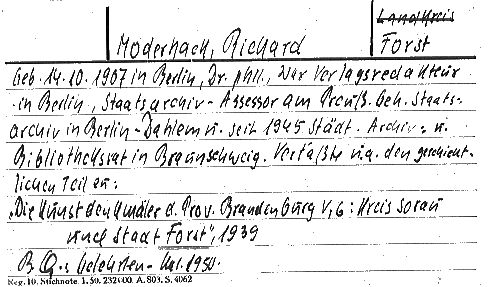 Landkreis
Moderhack, Richard Forst
Geb. 14.10.1907 in Berlin, Dr. phil., war Verlagsredakteur
in Berlin, Staatsarchiv-Assessor am Preuß. Geh. Staats-
archiv in Berlin-Dahlem u. seit 1945 Städt. Archiv- u.
Bibliotheksrat in Braunschweig. Verfaßte u.a. den geschicht-
lichen Teil zu:
„Die Kunstdenkmäler d. Prov. Brandenburg V,6: Kreis Sorau
und Stadt Forst", 1939
B.Q.: Gelehrten-Kal. 1950.
Reg. 10. Stichnote. 1. 50. 232000. A. 803. S. 4062